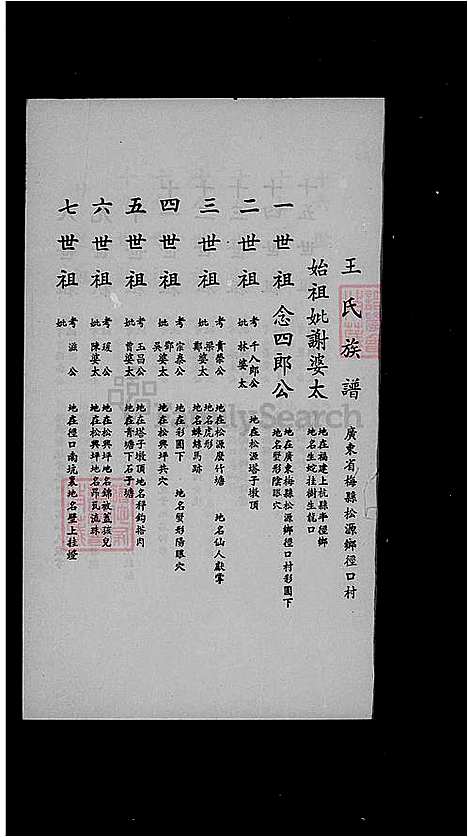 王氏族譜 廣東省梅縣松源鄉徑口村
始祖妣謝婆太 地在福建上杭縣半徑鄉
地名生蛇挂樹生龍口
一世祖 念四郎公 地在廣東梅縣松源鄉徑口村彩圓下
地名熨形陰眼穴
二世祖 考 千八郎公
妣 林婆太 地在松源塔子墩頂
三世祖 考 貴榮公 地在松源麼竹塘 地名仙人獻掌
妣 梁婆太 地名虎形
鄭婆太 地名蛛絲馬跡
四世祖 考 宗泰公 地在彩圓下 地名熨形陽眼穴
妣 鄧
吳婆太 地在松興坪共穴
五世祖 考 玉昌公 地在塔子墩頂地名秤鈎搭肉
妣 曾婆太 地在青塘下石子塘
六世祖 考 瑗公 地在松興坪地名錦被蓋孩兒
妣 陳婆太 地在松興坪地名茚瓦流珠
七世祖 考 滋公 地在徑口南坑裏地名壁上挂燈
妣
FamilySearch